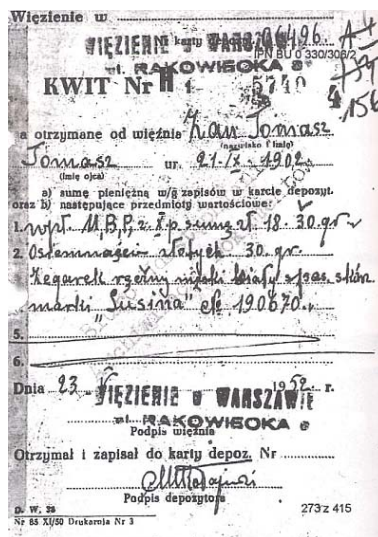 Więzienie w
Nr karty 06496.
WIĘZIENIE WARSZAWA
IPN BU 0 330/308/2
ul. RAKOWIECKA
KWIT Nr 5740
156
a otrzymane od więźnia Zan Tomasz
(nazwisko i imię)
Tomasz ur. 21.X-1902.
(imię ojca)
a) sumę pieniężną w/g zapisów w karcie depozyt.
oraz b) następujące przedmioty wartościowe:
1. wpł. M.B.P. sumę zł. 18.30 gr
2. Osiemnaście złotych 30. gr.
Zegarek ręczny męski biały pas. skórz.
marki "Lusina" No 190670.
5.
6.
Dnia 23. V 1952. r.
WIĘZIENIE w WARSZAWIE
ul. RAKOWIECKA
Podpis więźnia
Otrzymał i zapisał do karty depoz. Nr
Podpis depozytora
D. W. 28
273 z 415
Nr 85 XI/50 Drukarnia Nr 3